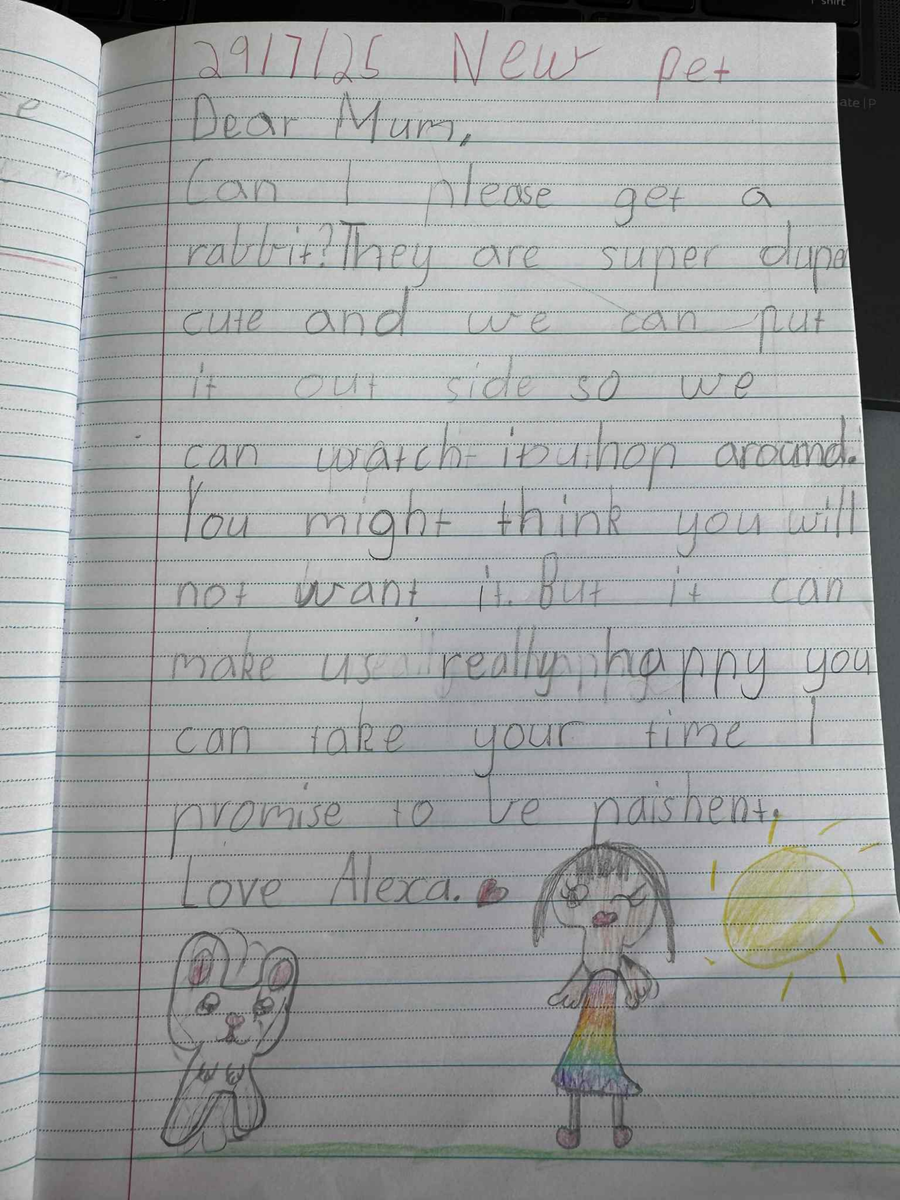 29/7/25 New pet
Dear Mum,
Can I please get a
rabbit? They are super duper
cute and we can put
it out side so we
can watch it hop around.
You might think you will
not want it. But it can
make us really happy you
can take your time I
promise to be paishent.
Love Alexa.
e
shift
ate | P